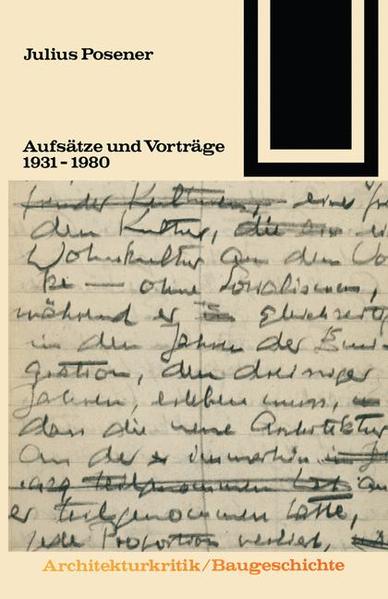 Julius Posener
Aufsätze und Vorträge
1931 – 1980
der Kultur, die
Wohnkultur an dem
– ohne Sozialismus,
während er gleichzeitig
in den Jahren der Emi-
gration, den dreissiger
Jahren, erleben muss,
dass die neue Architektur
an der er immerhin
1929 teilgenommen
er teilgenommen hatte,
jede Proportion verliert,
Architekturkritik/Baugeschichte